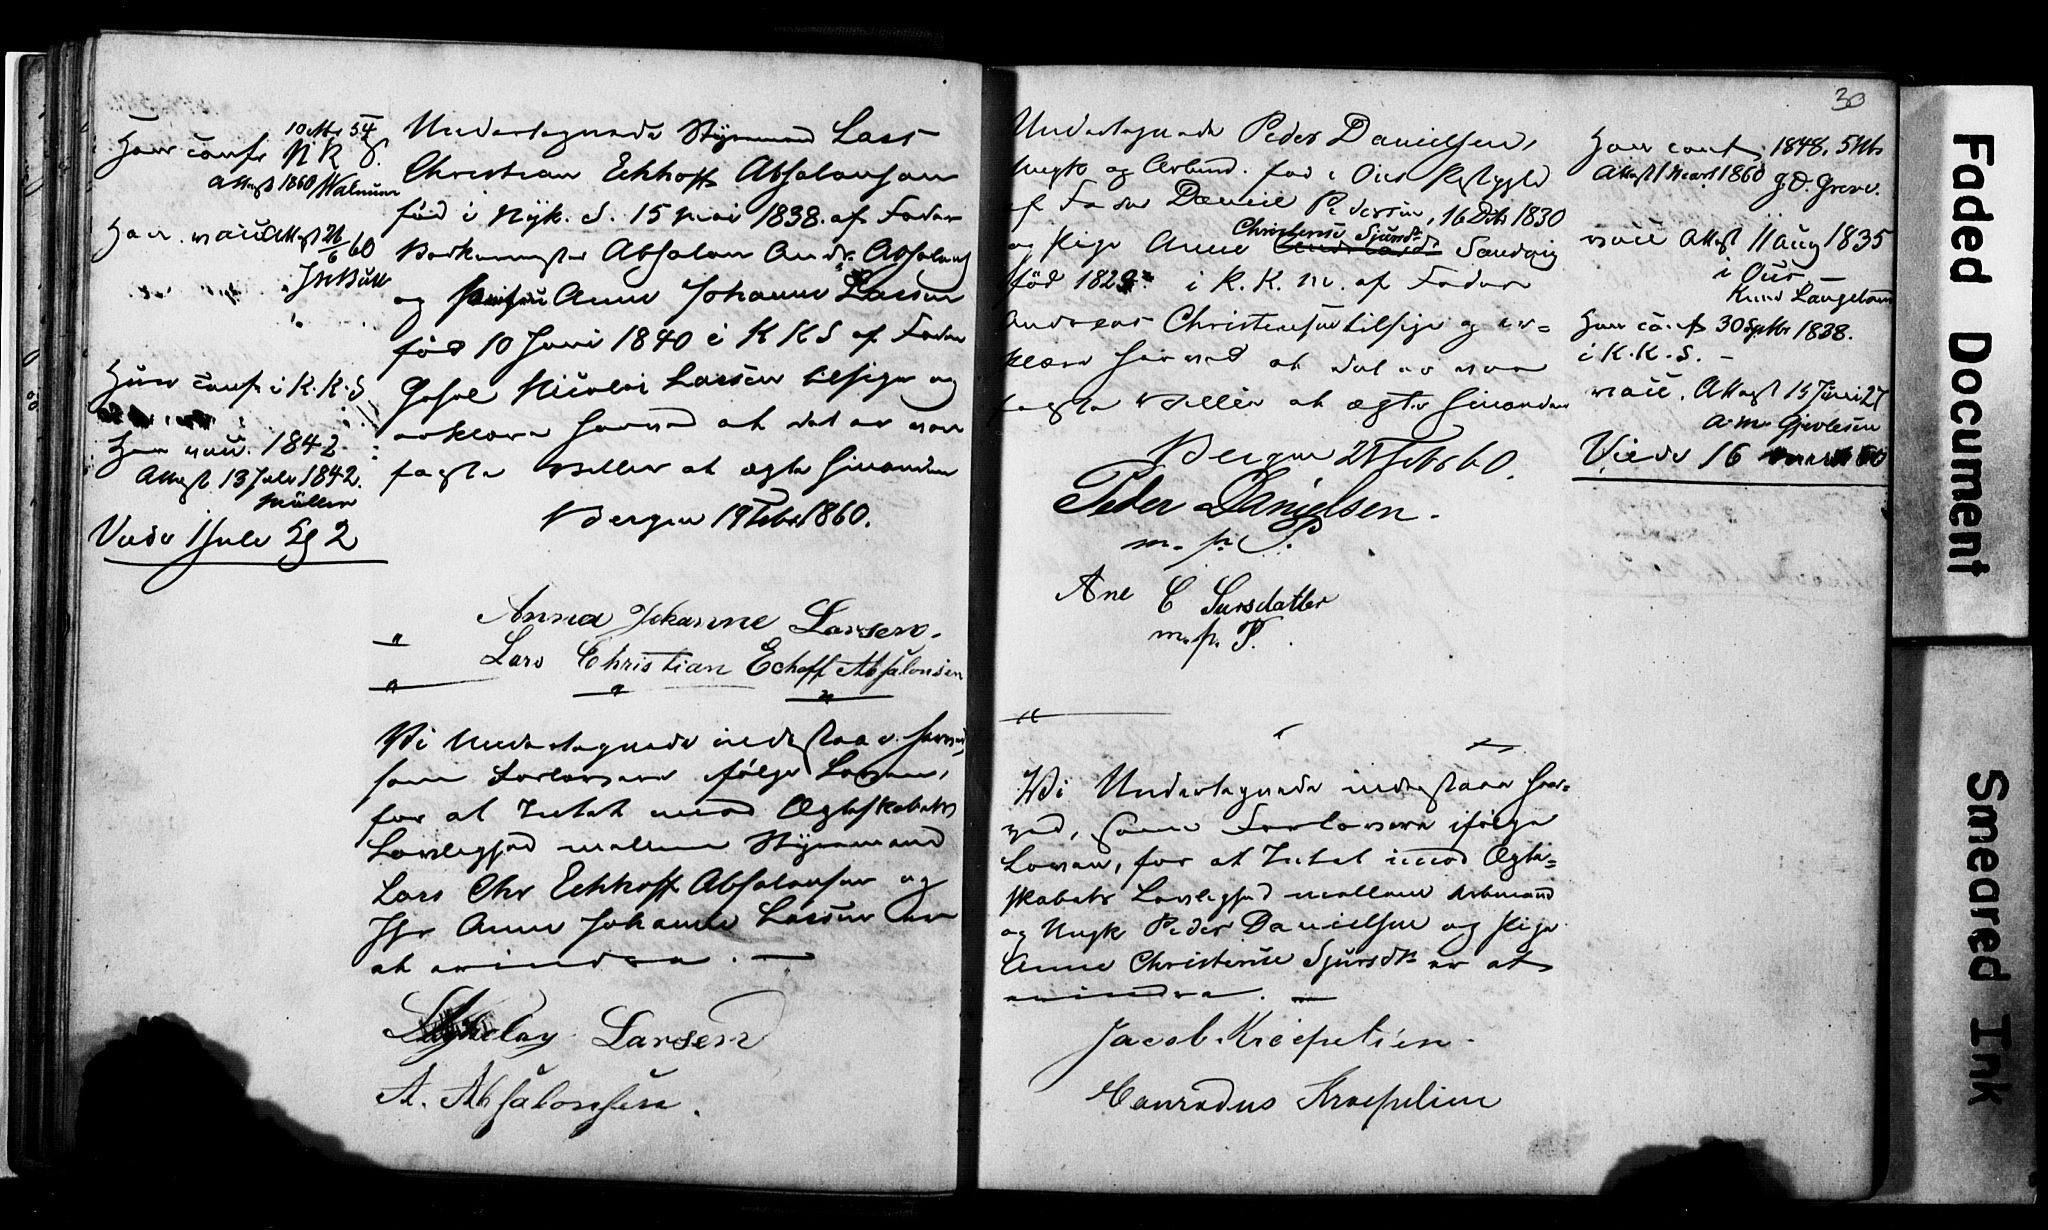 10 Octbr 54
Han conf. N K S.
Attest 1860
Han vacc Attest 26/6 60
Hun conf i K. K. S
Hun vacc. 1842
Attest 13 Juli 1842.
Müller
Viede 1 Juli Kl 2
Undertegnede Styrmand Lars
Christian Eckhoff Absalonsen
fød i Nyk. S. 15 Mai 1838. af Fader
Absalon Andr. Absalons
og Anne Johanne Larsen
fød 10 Juni 1840 i K K S af Fader
Nicolai Larsen tilsige og
erklære herved at det er vor
fagte Villie at ægte hinanden
Bergen 19 Febr 1860.
Anna Johanne Larsen.
Lars Christian Echoff Absalonsen
Vi Undertegnede indestaae herved
som Forlovere ifølge Loven,
for at Intet imod Ægteskabets
Lovlighed mellem Styrmand
Lars Chr Eckhoff Absalonsen og
Jfr Anne Johanne Larsen er
at erindre. —
Larsen
A. Absalonsen.
30
Undertegnede Peder Danielsen,
Ungk og Arbmd. fød i Ous
af Fader Daniel Pedersen, 16 Dcbr 1830
Christense Sjursdr
og Pige Anne Sandvig
fød 182 i K. K. af Fader
Andreas Christensen tilsige og er=
klære herved at det er vor
fagte Villie at ægte hinanden
Bergen Febr 60.
Peder Danielsen.
m. p. P.
Ane C Sursdatter
m. p. P.
Vi Undertegnede indestaae her=
ved, som Forlovere ifølge
Loven, for at Intet imod Ægte=
skabets Lovlighed mellem Arbmand
og Ungk Peder Danielsen og Pige
Anne Christense Sjursdr er at
erindre. —
Jacob Kroepelien.
Conradus Kroepelien
Han conf. 1848.
Attest 1860
vacc Attest 11 Aug 1835
i Ous —
Hun conf 30 Septbr 1838.
i K. K. S. —
vacc. Attest 15 Juni 27
Viede 16 60
Faded Document
Smeared Ink